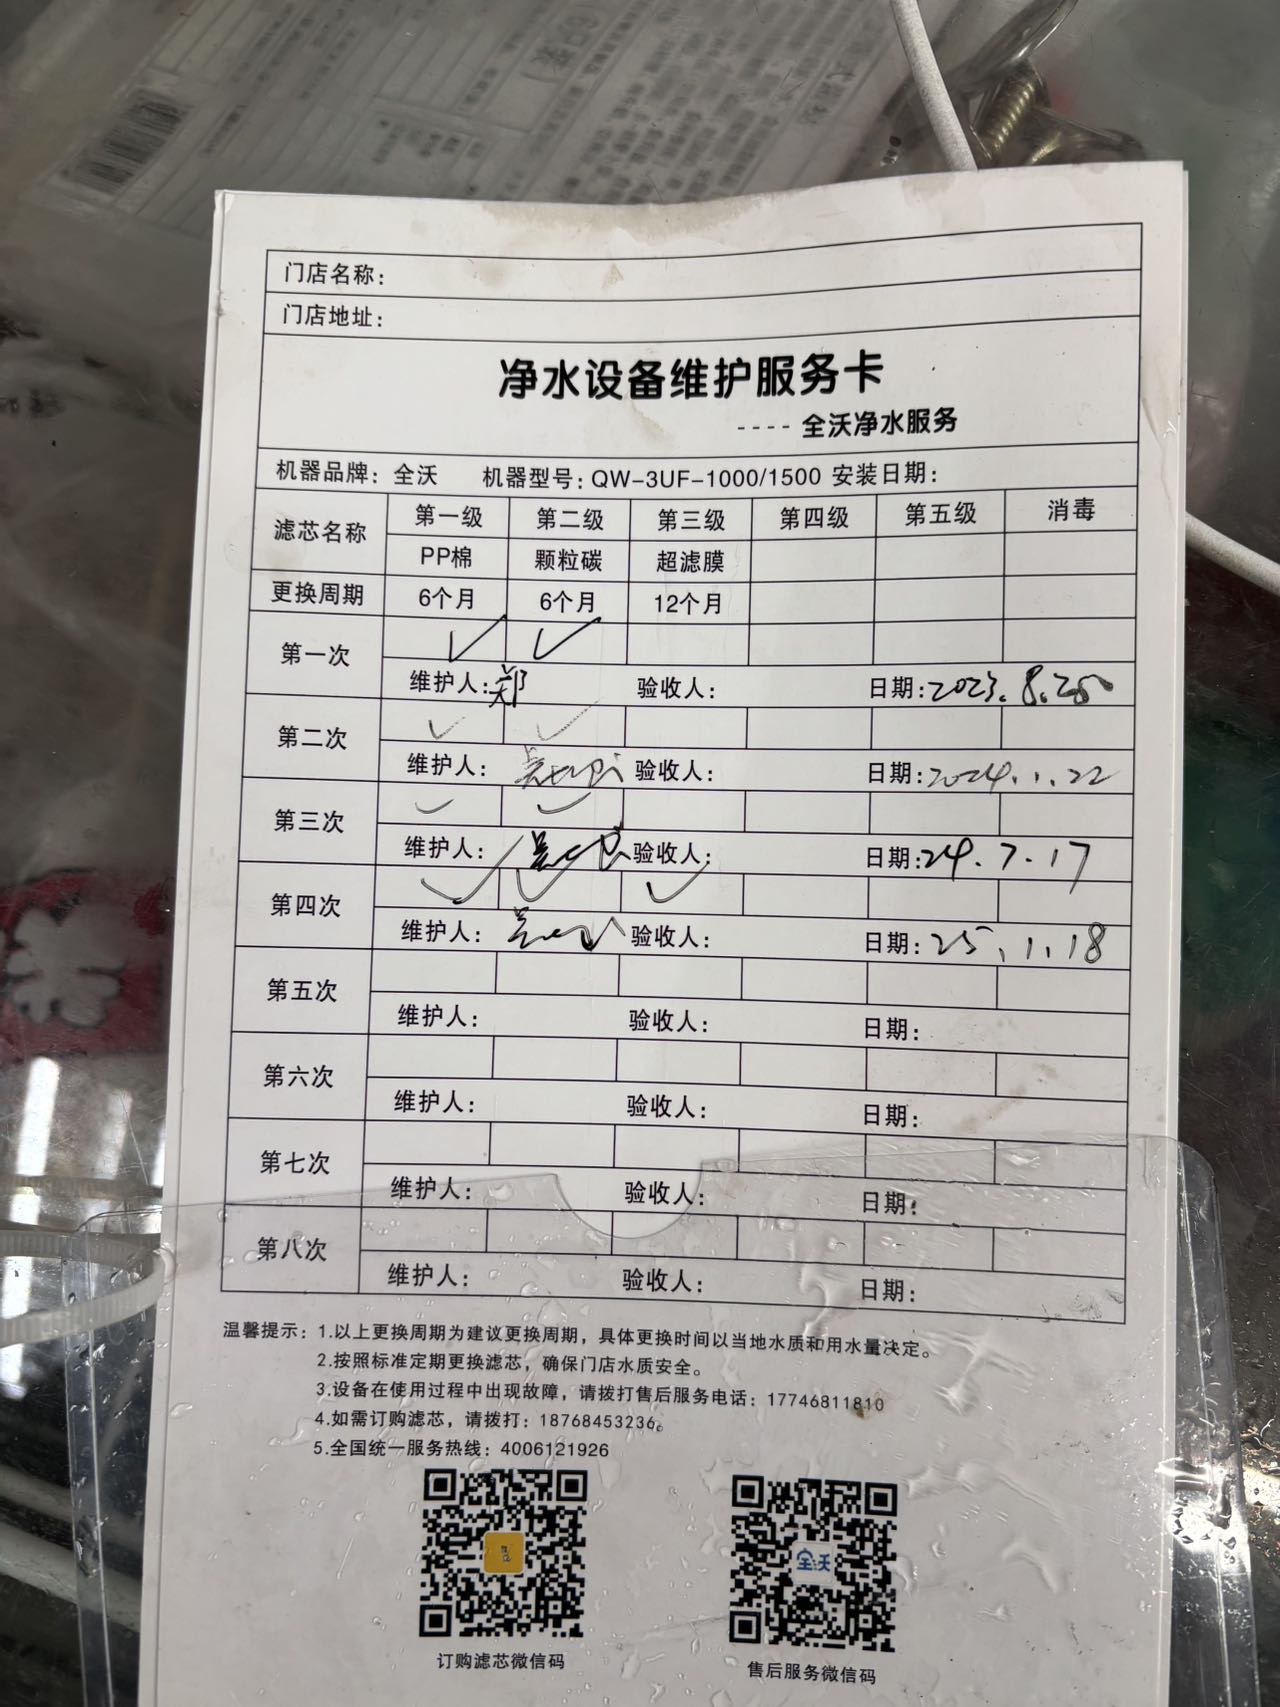 门店名称：
门店地址：
净水设备维护服务卡
---- 全沃净水服务
机器品牌：全沃 机器型号：QW-3UF-1000/1500 安装日期：
滤芯名称 第一级 第二级 第三级 第四级 第五级 消毒
PP棉 颗粒碳 超滤膜
更换周期 6个月 6个月 12个月
第一次 ✓ ✓
维护人：郑 验收人： 日期：2023.8.25
第二次 ✓ ✓
维护人： 验收人： 日期：2024.1.22
第三次 ✓ ✓
维护人： 验收人： 日期：24.7.17
第四次 ✓ ✓ ✓
维护人： 验收人： 日期：25.1.18
第五次
维护人： 验收人： 日期：
第六次
维护人： 验收人： 日期：
第七次
维护人： 验收人： 日期：
第八次
维护人： 验收人： 日期：
温馨提示：1.以上更换周期为建议更换周期，具体更换时间以当地水质和用水量决定。
2.按照标准定期更换滤芯，确保门店水质安全。
3.设备在使用过程中出现故障，请拨打售后服务电话：17746811810
4.如需订购滤芯，请拨打：18768453236。
5.全国统一服务热线：4006121926
全沃
订购滤芯微信码
售后服务微信码